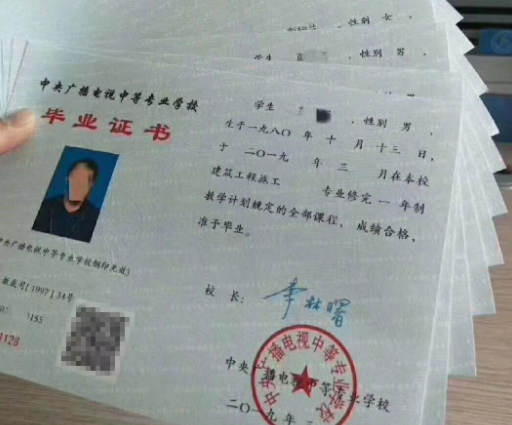 中央广播电视中等专业学校
毕业证书
中央广播电视中等专业学校钢印无效)
教成号[1997]34号
155
1128
性别 女,
学生
性别 男,
学生
性别 男,
生于一九八〇年十月十三日,
于二〇一九年三月在本校
建筑工程施工 专业修完一年制
教学计划规定的全部课程,成绩合格,
准于毕业。
校长: 李林曙
中央广播电视中等专业学校
二〇一九年
中央广播电视中等专业学校